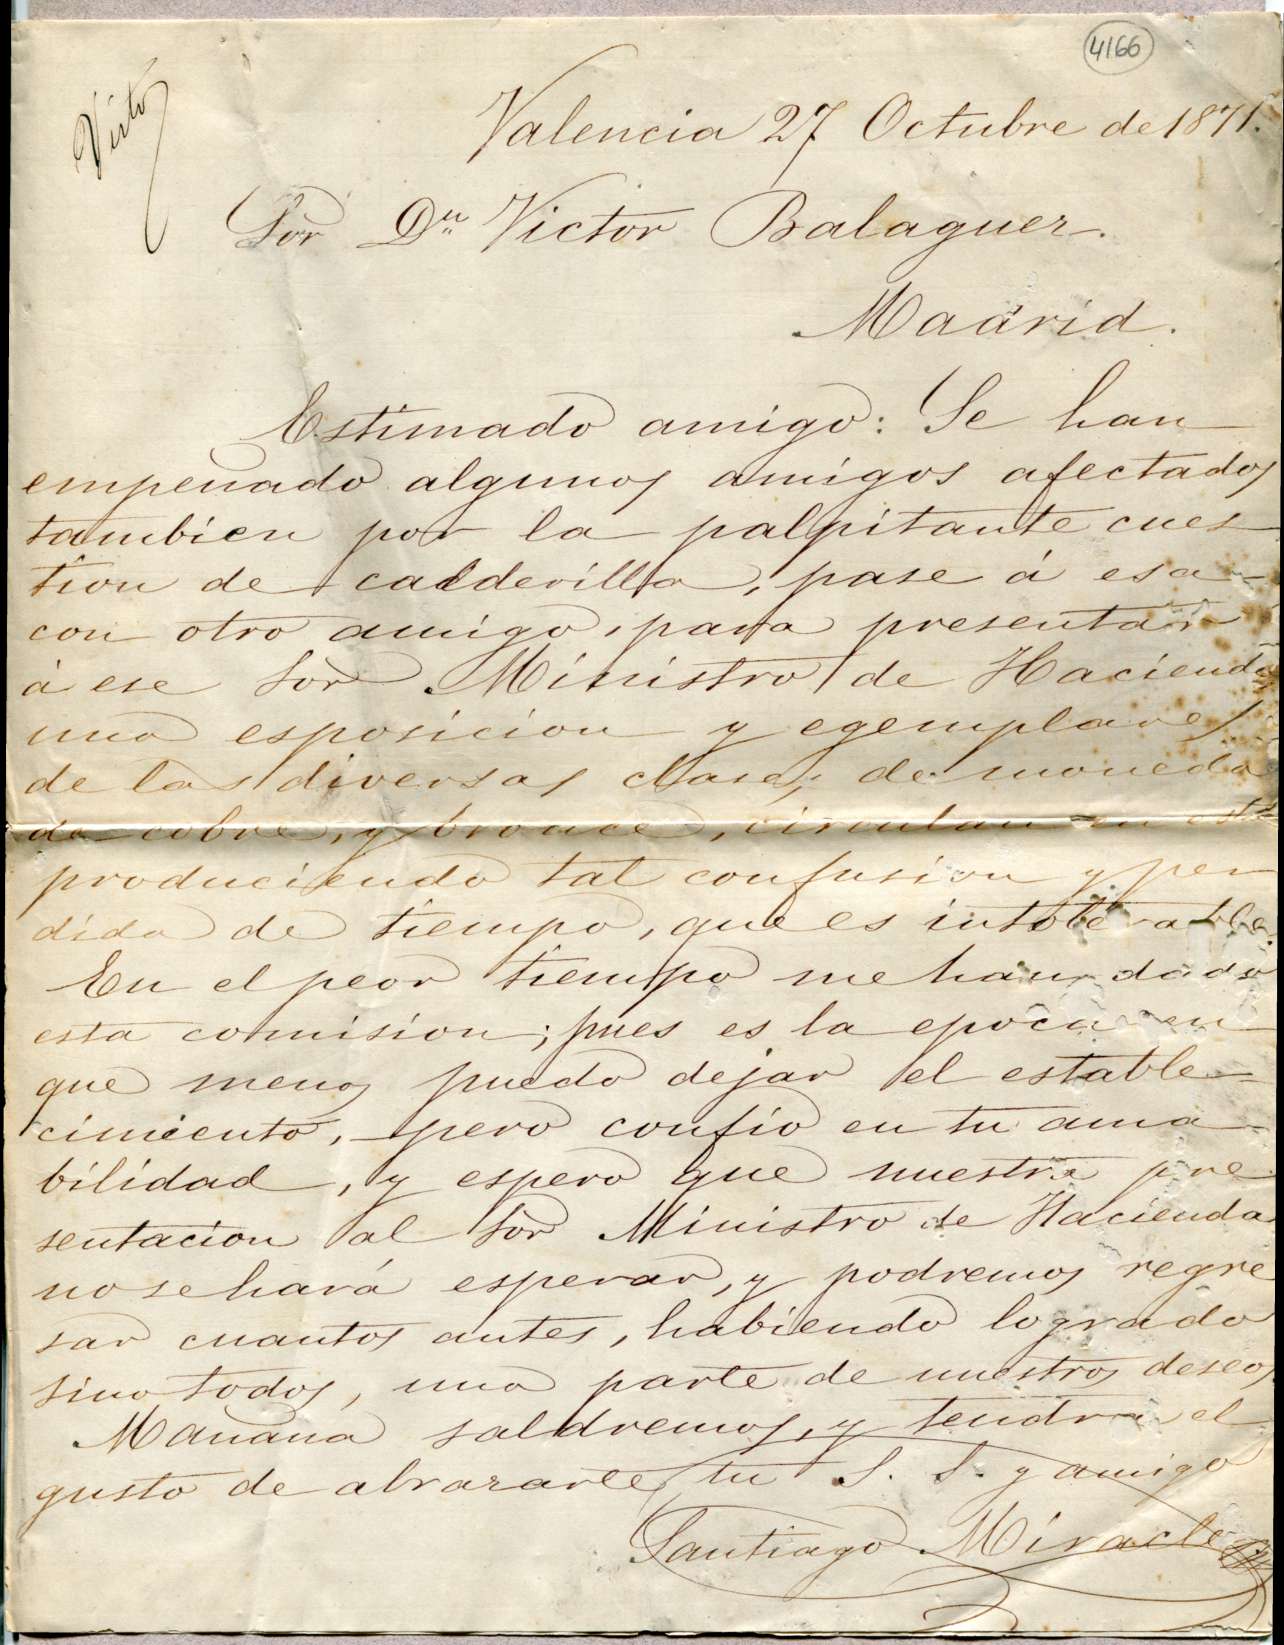 4166
Visto
Valencia 27 Octubre de 1871.
Sor Dn Victor Balaguer.
Madrid.
Estimado amigo: Se han
empenado algunos amigos afectados
tambien por la palpitante cues
tion de calderilla, pase á esa
con otro amigo, para presentar
á ese Sor Ministro de Hacienda
una esposicion y egemplares
de las diversas clases, de moneda
de cobre, y bronce, circulan en esta
produciendo tal confusion y per
dida de tiempo, que es intolerable.
En el peor tiempo me han dado
esta comision; pues es la epoca en
que menos puedo dejar el estable-
cimiento, pero confio en tu ama
bilidad, y espero que nuestra pre
sentacion al Sor Ministro de Hacienda
no se hará esperar, y podremos regre
sar cuantos antes, habiendo logrado
sino todos, una parte de nuestros deseos
Manana saldremos, y tendra el
gusto de abrazarte tu S. S. y amigo
Santiago Miracle